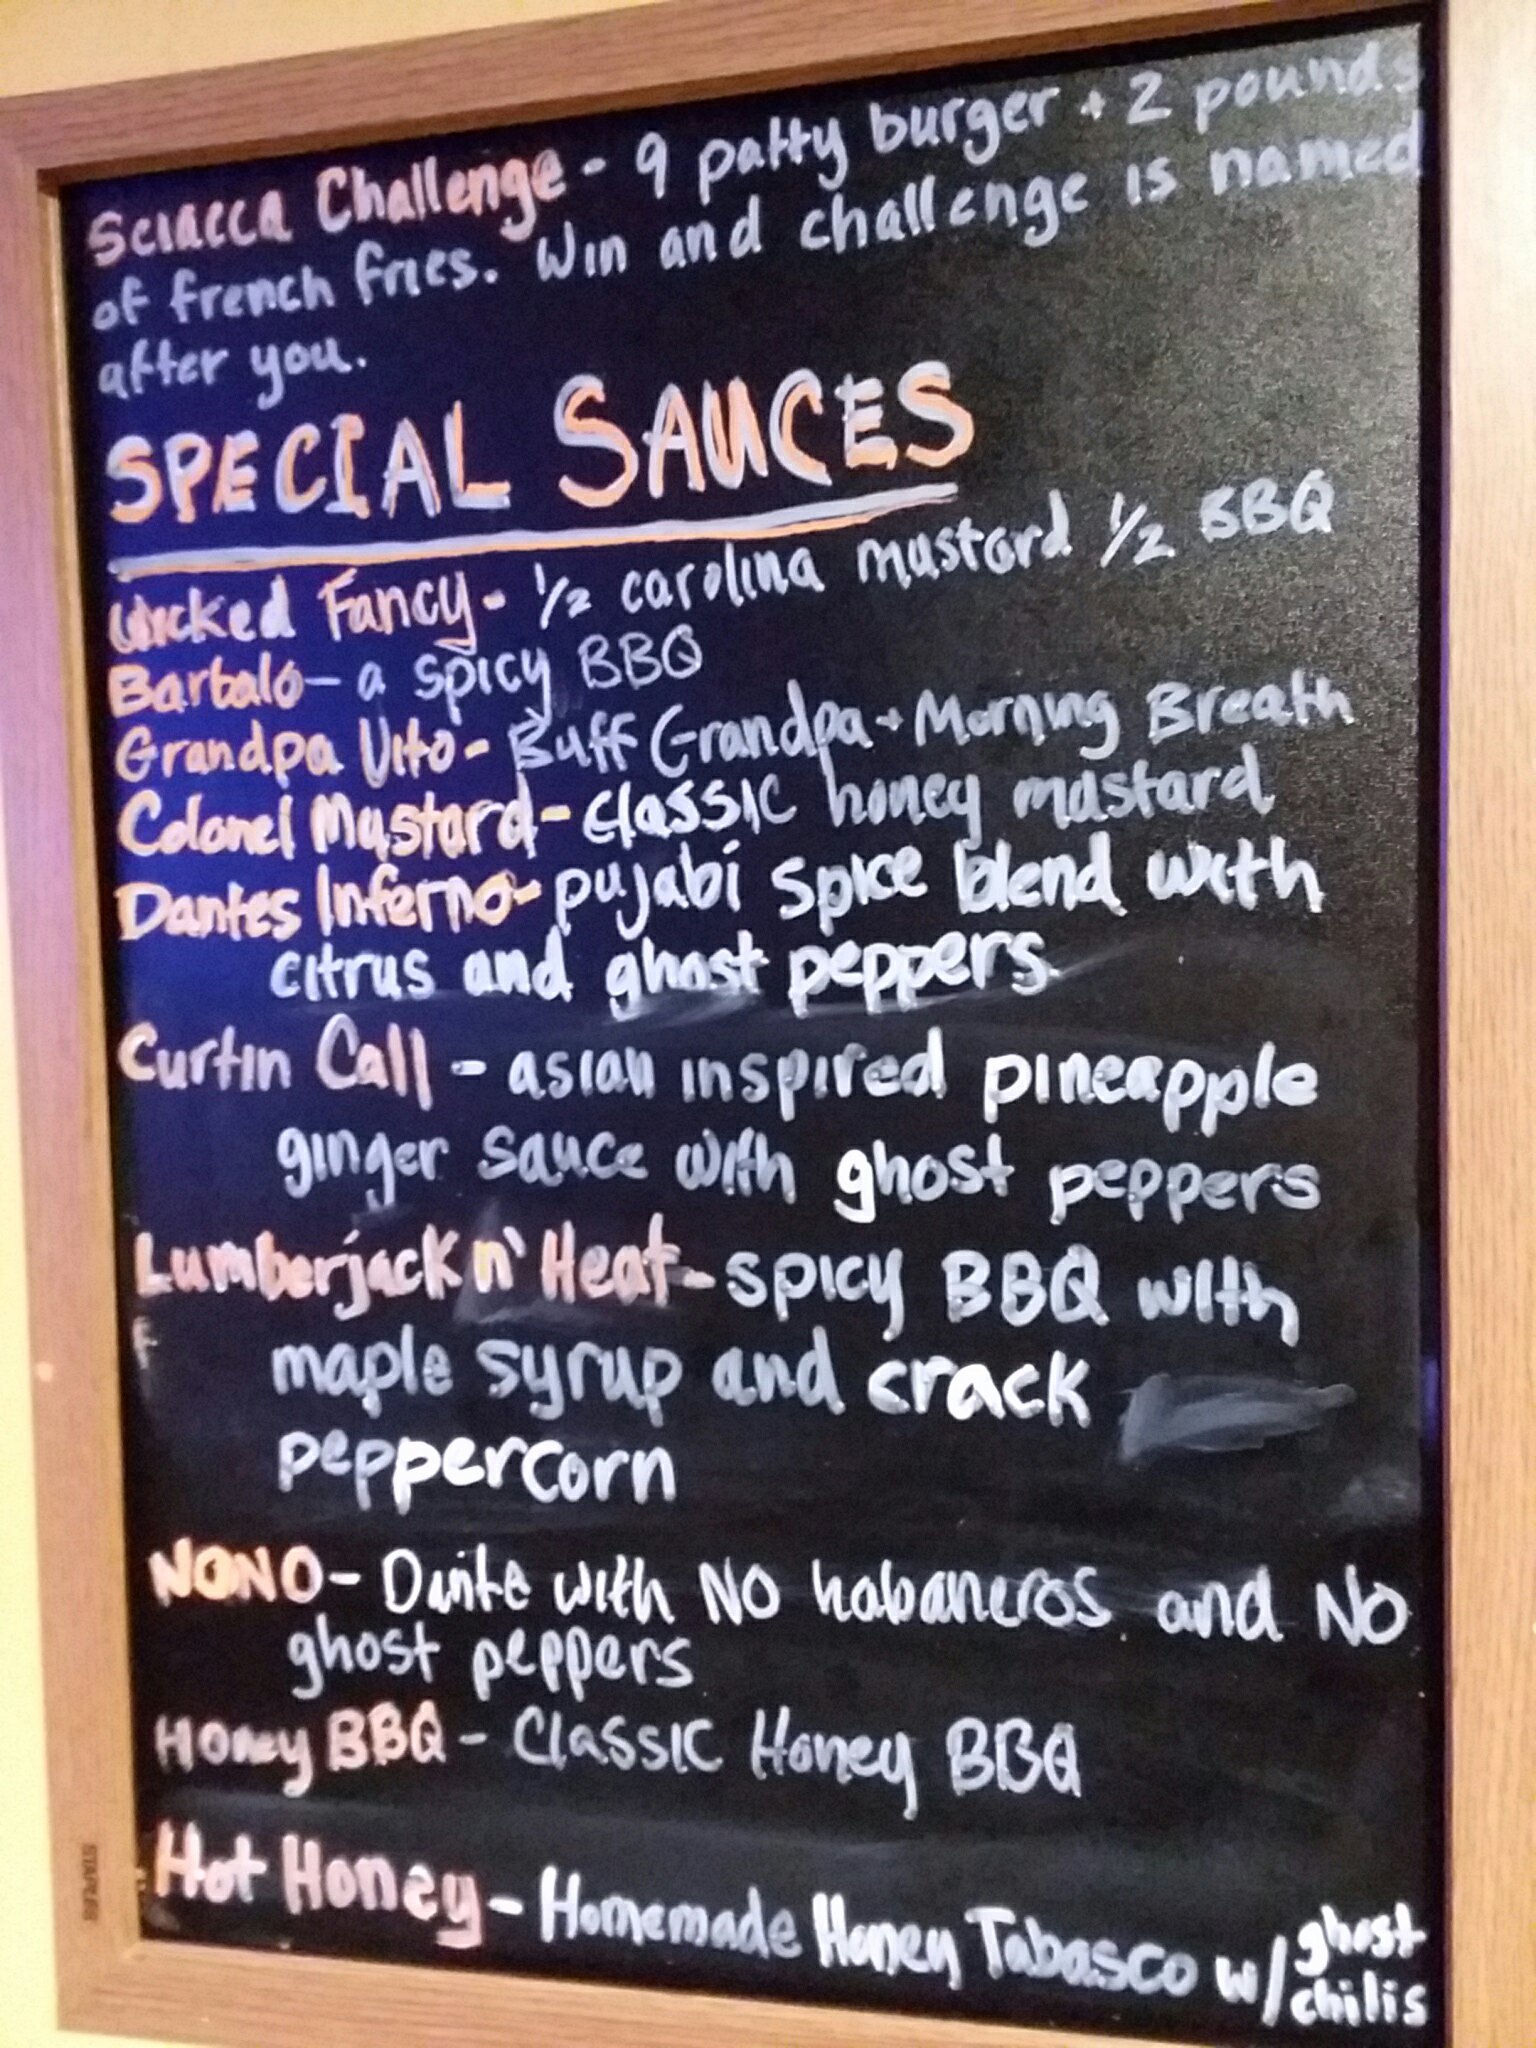 Sciacca Challenge - 9 patty burger + 2 pounds
of french fries. Win and challenge is named
after you.
SPECIAL SAUCES
Wicked Fancy - 1/2 carolina mustard 1/2 BBQ
Barbalo - a spicy BBQ
Grandpa Vito - Buff Grandpa + Morning Breath
Colonel Mustard - classic honey mustard
Dantes Inferno - pujabi spice blend with
citrus and ghost peppers.
Curtin Call - asian inspired pineapple
ginger sauce with ghost peppers
Lumberjack n' Heat - spicy BBQ with
maple syrup and crack
peppercorn
NONO - Dante with NO habaneros and NO
ghost peppers
Honey BBQ - Classic Honey BBQ
Hot Honey - Homemade Honey Tabasco w/ ghost
chilis
STAPLES